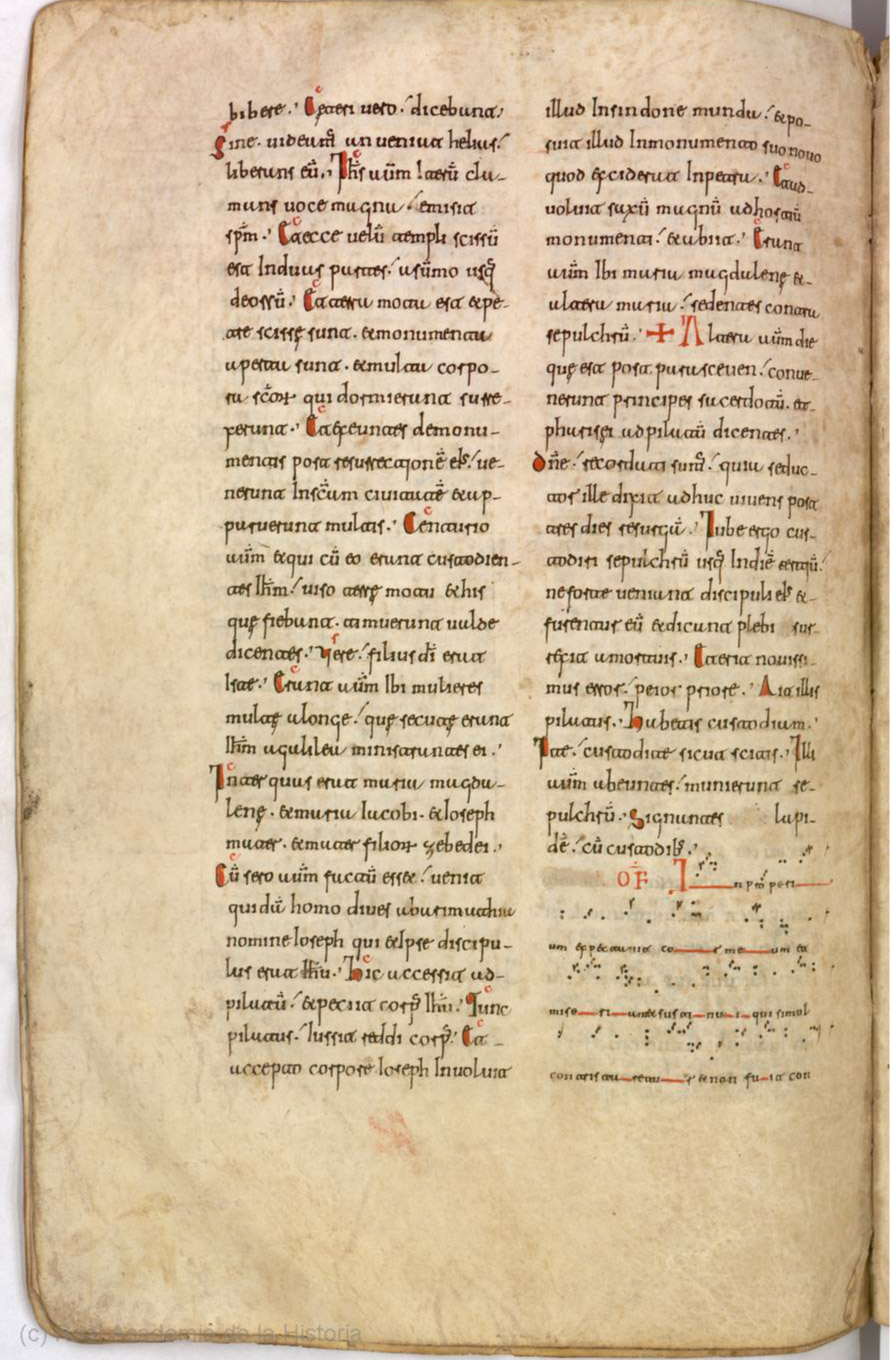 bibere. Ceteri uero dicebant
Sine uideam̄ an ueniat helias
liberans eū. Ih̄s aūm Iterū cla-
mans uoce magna emisit
spm̄. Et ecce uelū templi scissū
est Induas partes a sūmo usq̄
deossū. Et terra mota est et pe-
tre scissę sunt. et monumenta
aperta sunt. et multa corpo-
ra sc̄or qui dormierunt surre-
xerunt. Et exeuntes demonu-
mentis post resurrectjonē eIs ue-
nerunt Insc̄am ciuitatē et ap-
paruerunt multis. Centurio
aūm et qui cū eo erant custodien-
tes Ih̄m uiso terrę motu et his
quę fiebant. timuerunt ualde
dicentes. Vere filius dī erat
Iste. Erant aūm Ibi mulieres
multę alonge quę secutę erant
Ih̄m agalilea ministrantes ei.
Inter quas erat maria magda-
lenę. et maria Iacobi. et Ioseph
mater. et mater filior zebedei.
Cū sero aūm factū esset uenit
quidā homo diues abarimathia
nomine Ioseph qui et Ipse discipu-
lus erat Ih̄u. Hic accessit ad-
pilatū et petiit corp̄ Ih̄u. Tunc
pilatus Iussit reddi corp̄. Et-
accepto corpore Ioseph Inuoluit
illud Insindone munda et po-
suit illud Inmonumento suo nouo
quod exciderat Inpetra. Et ad-
uoluit saxū magnū adhostiū
monumenti et abiit. Erant
aūm Ibi maria magdalenę et-
altera maria sedentes contra
sepulchrū. + Altera aūm die
quę est post parasceuen conue-
nerunt principes sacerdotū. et-
pharisęi adpilatū dicentes.
Dn̄e recordati sum̄ quia seduc-
tor ille dixit adhuc uiuens post
tres dies resurgā. Iube ergo cus-
todiri sepulchrū usq̄ Indiē tertiū
ne forte ueniant discipuli eIs et-
furentur eū et dicant plebi sur-
rexit amortuis. Et erit nouissi-
mus error peior priore. Ait illis
pilatus. Habetis custodiam.
Ite custodite sicut scitis. Illi
aūm abeuntes munierunt se-
pulchrū. Signantes lapi-
dē cū custodib.
OF̄ I n pro peri
um expectauit co r me um et
mise ri am et sus ti nu i qui simul
con tris ta retu r et non fu it con